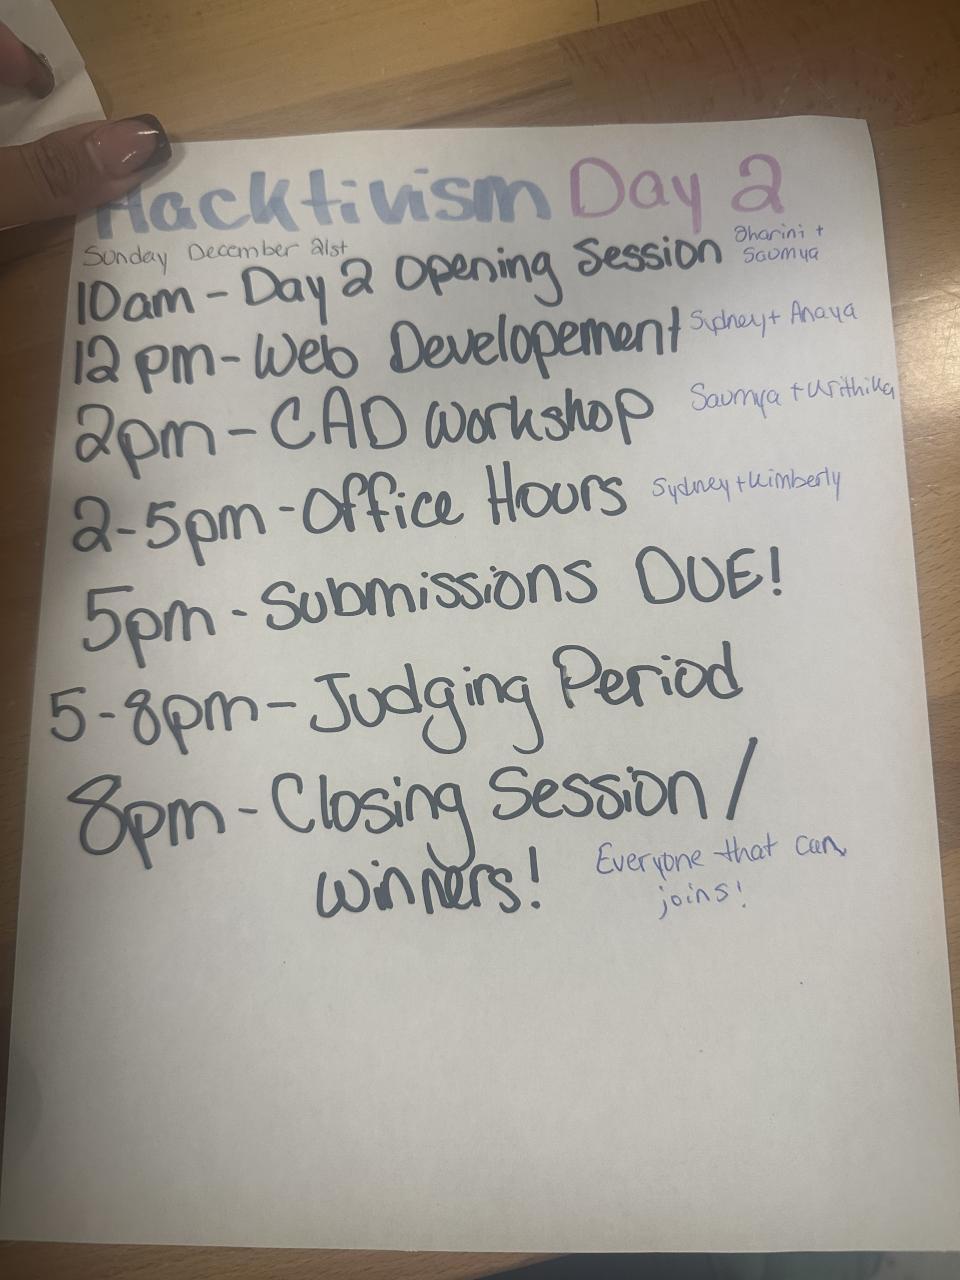 Hacktivism Day 2
Sunday December 21st
10am - Day 2 Opening Session Dharini + Saumya
12 pm - Web Developement Sydney + Anaya
2pm - CAD Workshop Saumya + Krithika
2-5pm - Office Hours Sydney + Kimberly
5pm - Submissions DUE!
5-8pm - Judging Period
8pm - Closing Session /
Winners! Everyone that can
joins!